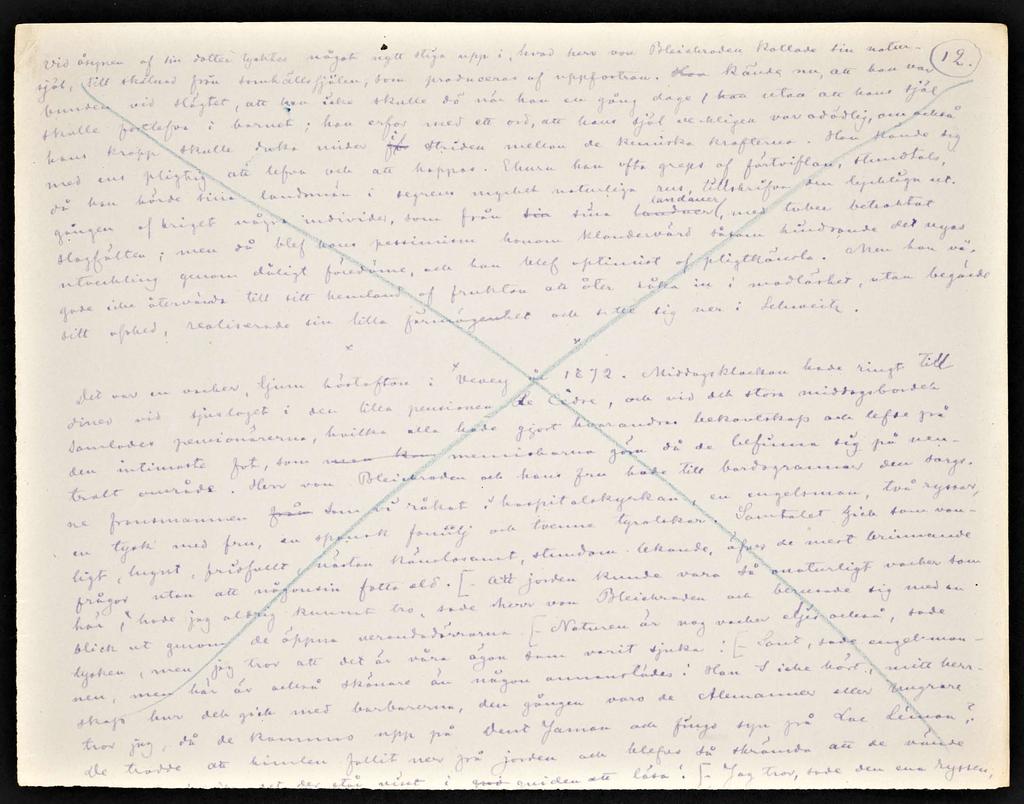 12.
Vid åsynen af sin dotter tycktes något nytt stiga upp i, hvad herr von Bleichroden kallade sin natur-
själ, till skilnad från samhällssjälen, som produceras af uppfostran. Han kände nu, att han var
bunden vid slägtet, att han icke skulle dö när han en gång doge, utan att hans själ
skulle fortlefva i barnet; han erfor med ett ord, att hans själ verkligen var odödlig, om också
hans kropp skulle duka under i striden mellan de kemiska krafterna. Han kände sig
med ens pligtig att lefva och att hoppas. Ehuru han ofta greps af förtviflan, stundtals,
då han hörde sina landsmän i segrens mycket naturliga rus, tillskrifva den lyckliga ut-
gången af kriget några individer, som från sina landauer, med tuber betraktat
slagfälten; men då blef hans pessimism honom klandervärd såsom hindrande det nyas
utveckling genom dåligt föredöme, och han blef optimist af pligtkänsla. Men han vå-
gade icke återvända till sitt hemland af fruktan att åter råka in i modlöshet, utan begärde
sitt afsked, realiserade sin lilla förmögenhet och satte sig ner i Schweitz.
x x
Det var en vacker, ljum höstafton i Vevey år 1872. Middagsklockan hade ringt till
diner vid sjuslaget i den lilla pensionen Le Cèdre, och vid det stora middagsbordet
samlades pensionärerna, hvilka alla hade gjort hvarandras bekantskap och lefde på
den intimaste fot, som menniskorna göra då de befinna sig på neu-
tralt område. Herr von Bleichroden och hans fru hade till bordsgrannar den sorgs-
ne fransmannen som vi råkat i hospitalskyrkan, en engelsman, två ryssar,
en tysk med fru, en spansk familj och tvenne tyrolskor. Samtalet gick som van-
ligt, lugnt, fridfullt, nästan känslosamt, stundom lekande, äfven de mest brinnande
frågor utan att någonsin fatta eld. [– Att jorden kunde vara så onaturligt vacker som
här, hade jag aldrig kunnat tro, sade herr von Bleichroden och berusade sig med en
blick ut genom de öppna verandadörrarna. [– Naturen är nog vacker eljes också, sade
tysken, men jag tror att det är våra ögon som varit sjuka. [– Sant, sade engelsman-
nen, men här är också skönare än någon annanstädes! Han I icke hört, mitt herr-
skap hur det gick med barbarerna, den gången, voro de Alemanner eller Ungrare
tror jag, då de kommo upp på Dent Jaman och fingo syn på Lac Léman?
De trodde att himlen fallit ner på jorden och blefvo så skrämda att de vände
det der står visst i guiden att läsa! [– Jag tror, sade den ena ryssen,